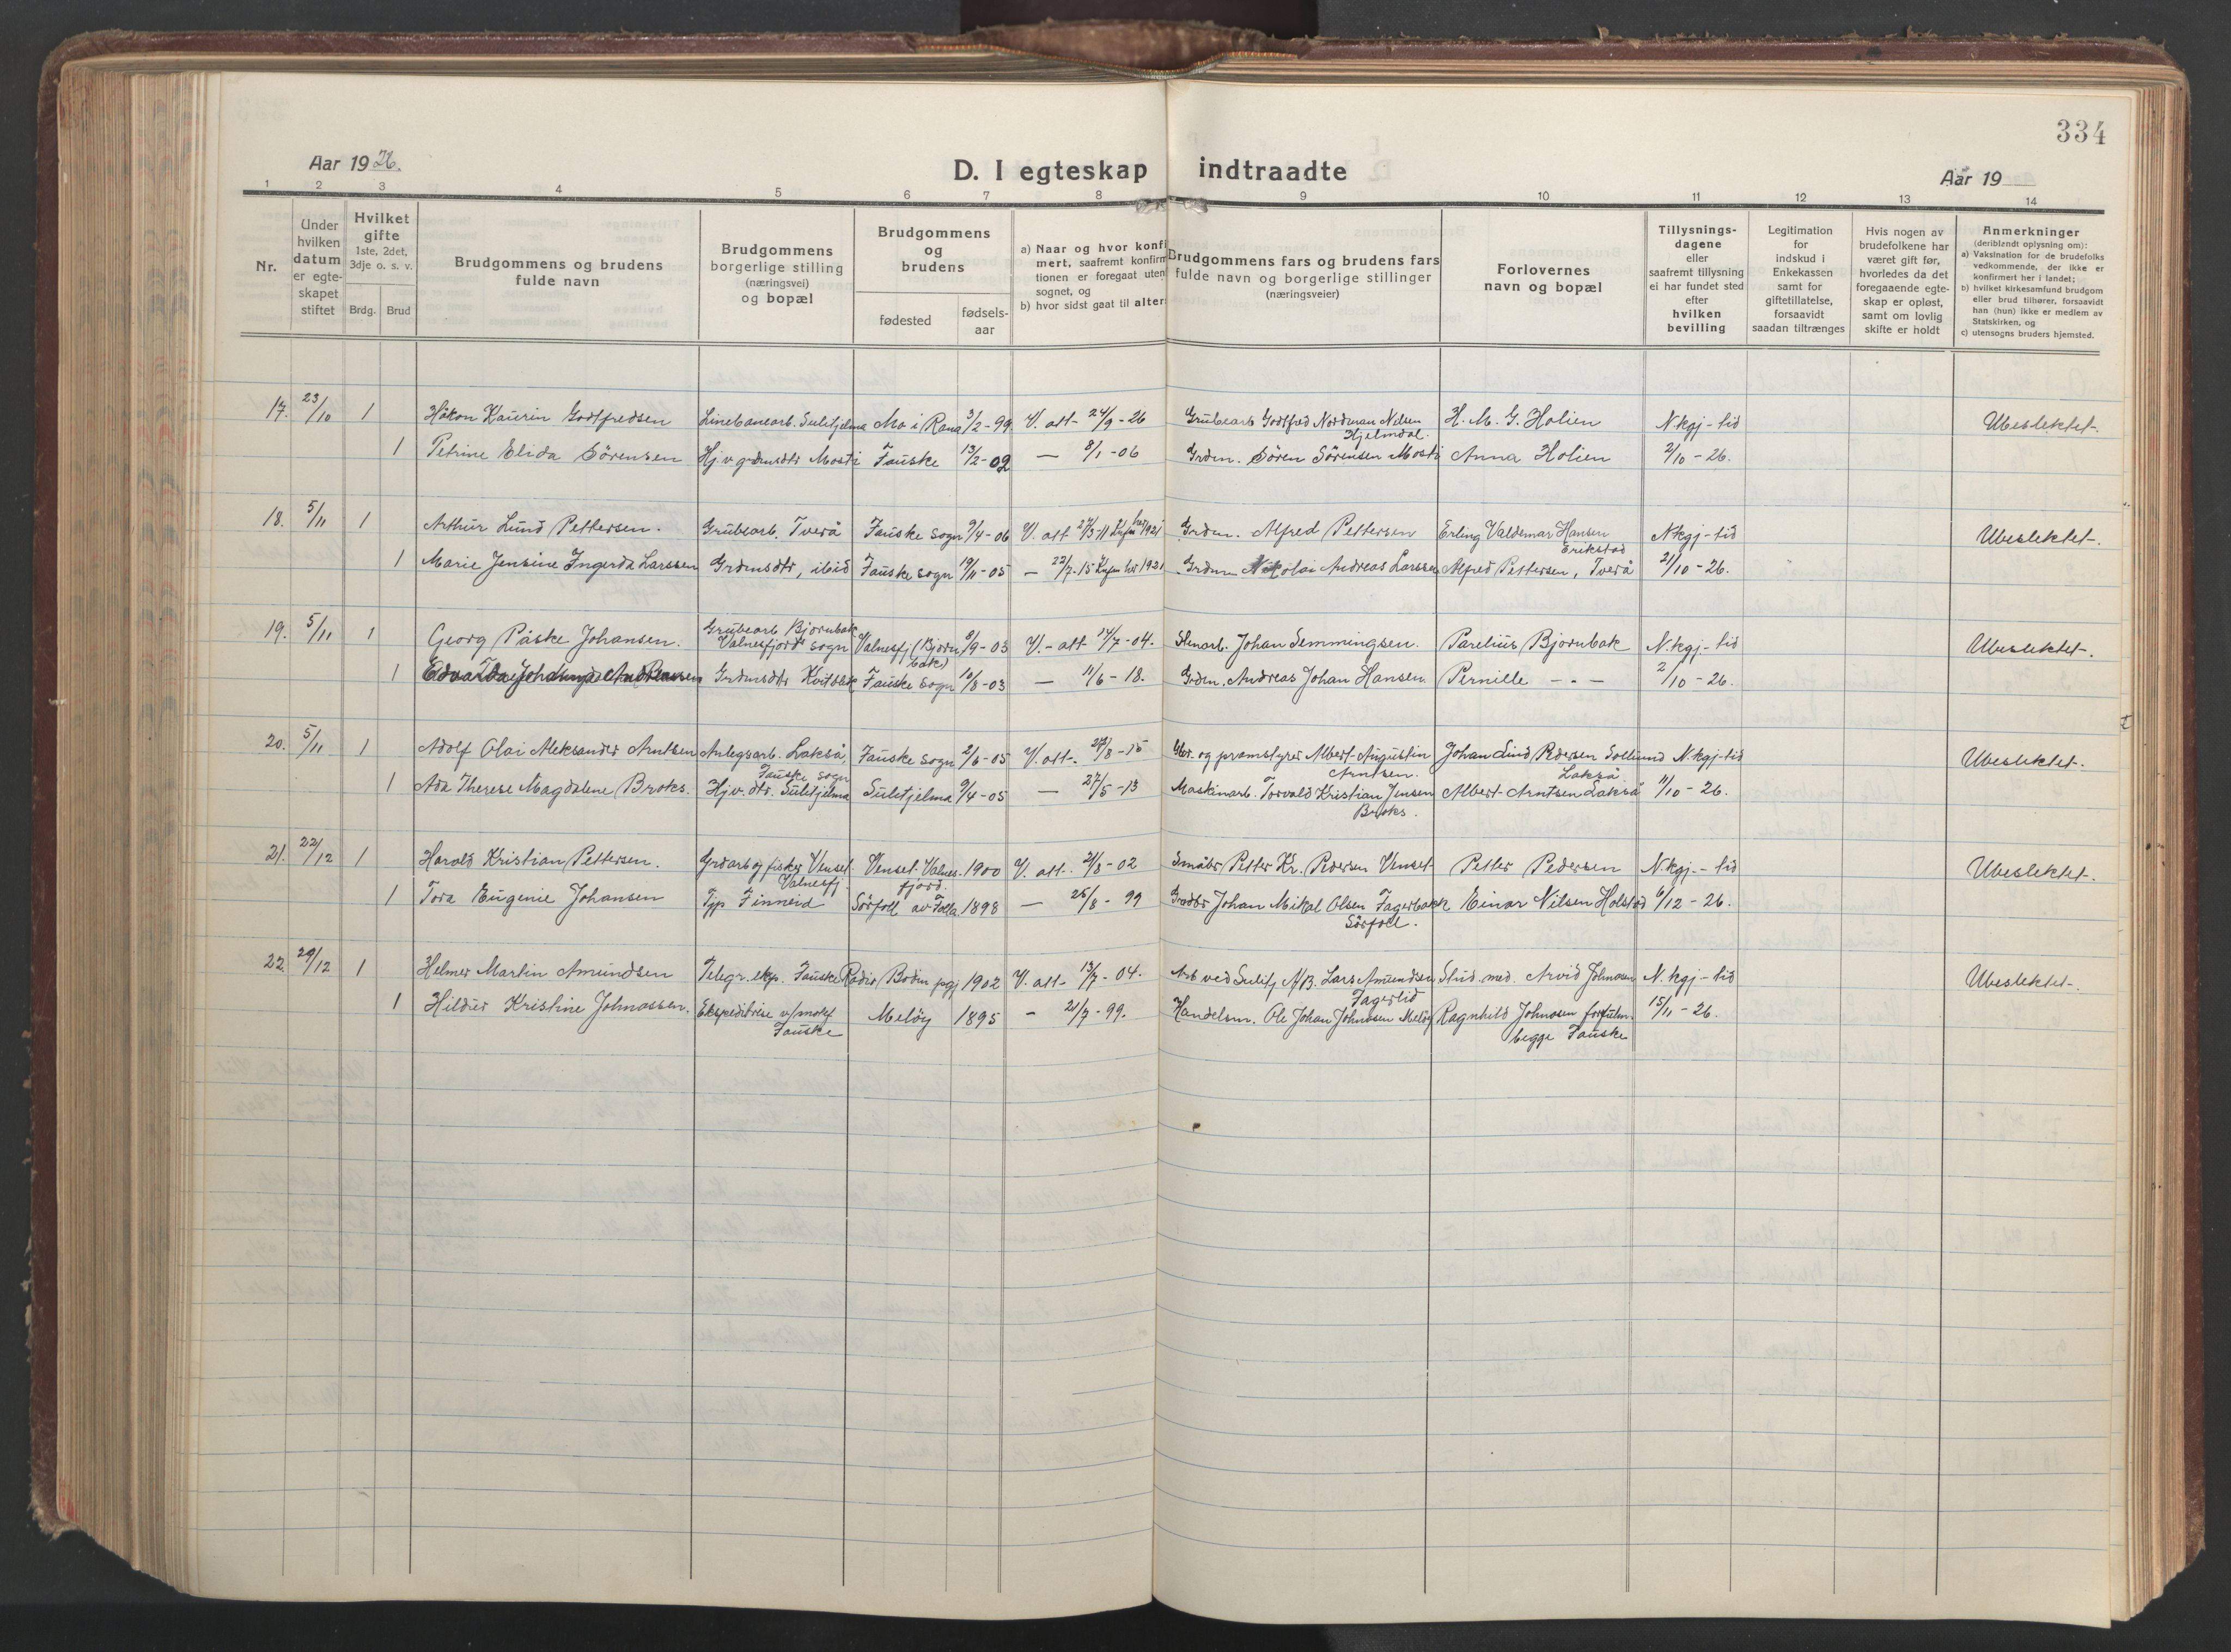 334
Aar 1926.
D. I egteskap indtraadte
Aar 19
1 2 3 4 5 6 7 8 9 10 11 12 13 14
Nr.
Under hvilken datum er egteskapet stiftet
Hvilket gifte 1ste, 2det, 3dje o. s. v.
Brdg. Brud
Brudgommens og brudens fulde navn
Brudgommens borgerlige stilling (næringsvei) og bopæl
Brudgommens og brudens
fødested fødselsaar
a) Naar og hvor konfi
mert, saafremt konfirm
tionen er foregaat uten
sognet, og
b) hvor sidst gaat til alters
Brudgommens fars og brudens fars
fulde navn og borgerlige stillinger
(næringsveier)
Forlovernes navn og bopæl
Tillysningsdagene eller saafremt tillysning ei har fundet sted efter hvilken bevilling
Legitimation for indskud i Enkekassen samt for giftetillatelse, forsaavidt saadan tiltrænges
Hvis nogen av brudefolkene har været gift før, hvorledes da det foregaaende egteskap er opløst, samt om lovlig skifte er holdt
Anmerkninger
(deriblandt oplysning om):
a) Vaksination for de brudefolks vedkommende, der ikke er konfirmert her i landet;
b) hvilket kirkesamfund brudgom eller brud tilhører, forsaavidt han (hun) ikke er medlem av Statskirken, og
c) utensogns bruders hjemsted.
17. 23/10 1 Håkon Kaurin Godtfredsen Linebanearb. Sulitjelma Mo i Rana 3/2-99 V. att- 24/9-26 Grubearb Godtfred Nordman Nilsen Hjelmdal. H. M. G. Holien N.kgj-tid Ubeslektet.
1 Petrine Elida Sörensen Hj.v grdmsdtr Mosti Fauske 13/2-02 — 8/1-06 Grdm. Sören Sörensen Mosti Anna Holien 2/10-26.
18. 5/11 1 Arthur Lund Pettersen. Grubearb. Tverå Fauske sogn 9/4-06 V. att 27/3-11 her 1921 Grdm. Alfred Pettersen Erling Valdemar Hansen Erikstad N.kgj-tid Ubeslektet.
1 Marie Jensine Ingerda Larssen Grdmsdtr, ibid Fauske sogn 19/11-05 — 22/7.15 her 1921 Grdm Nikolai Andreas Larssen Alfred Pettersen, Tverå 21/10-26.
19. 5/11 1 Georg Påske Johansen. Grubearb Bjørnbak Valnesfjord sogn Valnesfj (Bjørnbak) 8/9-03 V.-att 17/7-04. Johan Semmingsen. Parelius Bjørnbak N.kgj.-tid Ubeslektet.
1 Edvarda Andreassen Grdmsdtr Kvitblik Fauske sogn 10/8-03 — 11/6-18. Grdm. Andreas Johan Hansen. Pernille — " — 2/10-26.
20. 5/11 1 Adolf Olai Aleksander Arntsen Anlegsarb. Lakså, Fauske sogn Fauske sogn 2/6-05 V. att-. 22/8-15 Gbr. og pramstyrer Albert Augustin Arntsen. Johan Lind Pedersen Sollund Lakså N.kgj-tid Ubeslektet.
1 Ada Therese Magdalene Broks. Hj.v. dtr. Sulitjelma Sulitjelma 9/4-05 — 27/5-13 Maskinarb. Torvald Kristian Jensen Broks. Albert Arntsen Lakså 11/10-26.
21. 22/12 1 Harald Kristian Pettersen. Grdarb og fisker Venset Valnesfj. Venset Valnesfjord. 1900 V. att. 21/8-02 Småbr Petter Kr. Pedersen Venset Petter Pedersen N.kgj.-tid Ubeslektet.
1 Tora Eugenie Johansen Tjp Finneid Sörfoll av Folla 1898 — 26/8-99 Gradbr Johan Mikal Olsen Fagerbakk Sörfoll. Einar Nilsen Holstad 6/12-26.
22. 29/12 1 Helmer Martin Amundsen Telegr. eksp. Fauske Radio Bodin pgj 1902 V. att- 13/7-04. Arb ved Sulitj A/B. Lars Amundsen Fagerlid Stud. med. Arvid Johnsen N.kgj-tid Ubeslektet.
1 Hildur Kristine Johnassen. Ekspeditrise Fauske Meløy 1895 - 21/7-99. Handelsm. Ole Johan Johnasen Meløy Ragnhild Johnsen begge Fauske 15/11-26.